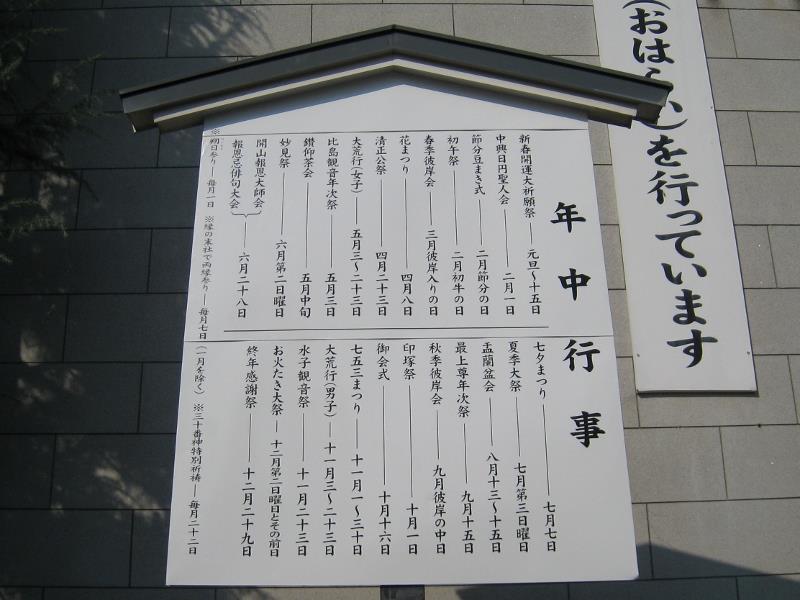 (おはらい)を行っています
年中行事
新春開運大祈願祭 ― 元旦~十五日
中興日円聖人会 ― 二月一日
節分豆まき式 ― 二月節分の日
初午祭 ― 二月初牛の日
春季彼岸会 ― 三月彼岸入りの日
花まつり ― 四月八日
清正公祭 ― 四月二十三日
大荒行(女子) ― 五月三~二十三日
比島観音年次祭 ― 五月三日
鑽仰茶会 ― 五月中旬
妙見祭 ― 六月第二日曜日
開山報恩大師会
報恩忌俳句大会 ― 六月二十八日
七夕まつり ― 七月七日
夏季大祭 ― 七月第三日曜日
盂蘭盆会 ― 八月十三~十五日
最上尊年次祭 ― 九月十五日
秋季彼岸会 ― 九月彼岸の中日
印塚祭 ― 十月一日
御会式 ― 十月十六日
七五三まつり ― 十一月一~三十日
大荒行(男子) ― 十一月三~二十三日
水子観音祭 ― 十一月二十三日
お火たき大祭 ― 十二月第二日曜日とその前日
終年感謝祭 ― 十二月二十九日
※朔日参り ― 毎月一日 ※縁の末社で両縁参り ― 毎月七日 (一月を除く) ※三十番神特別祈祷 ― 毎月二十二日